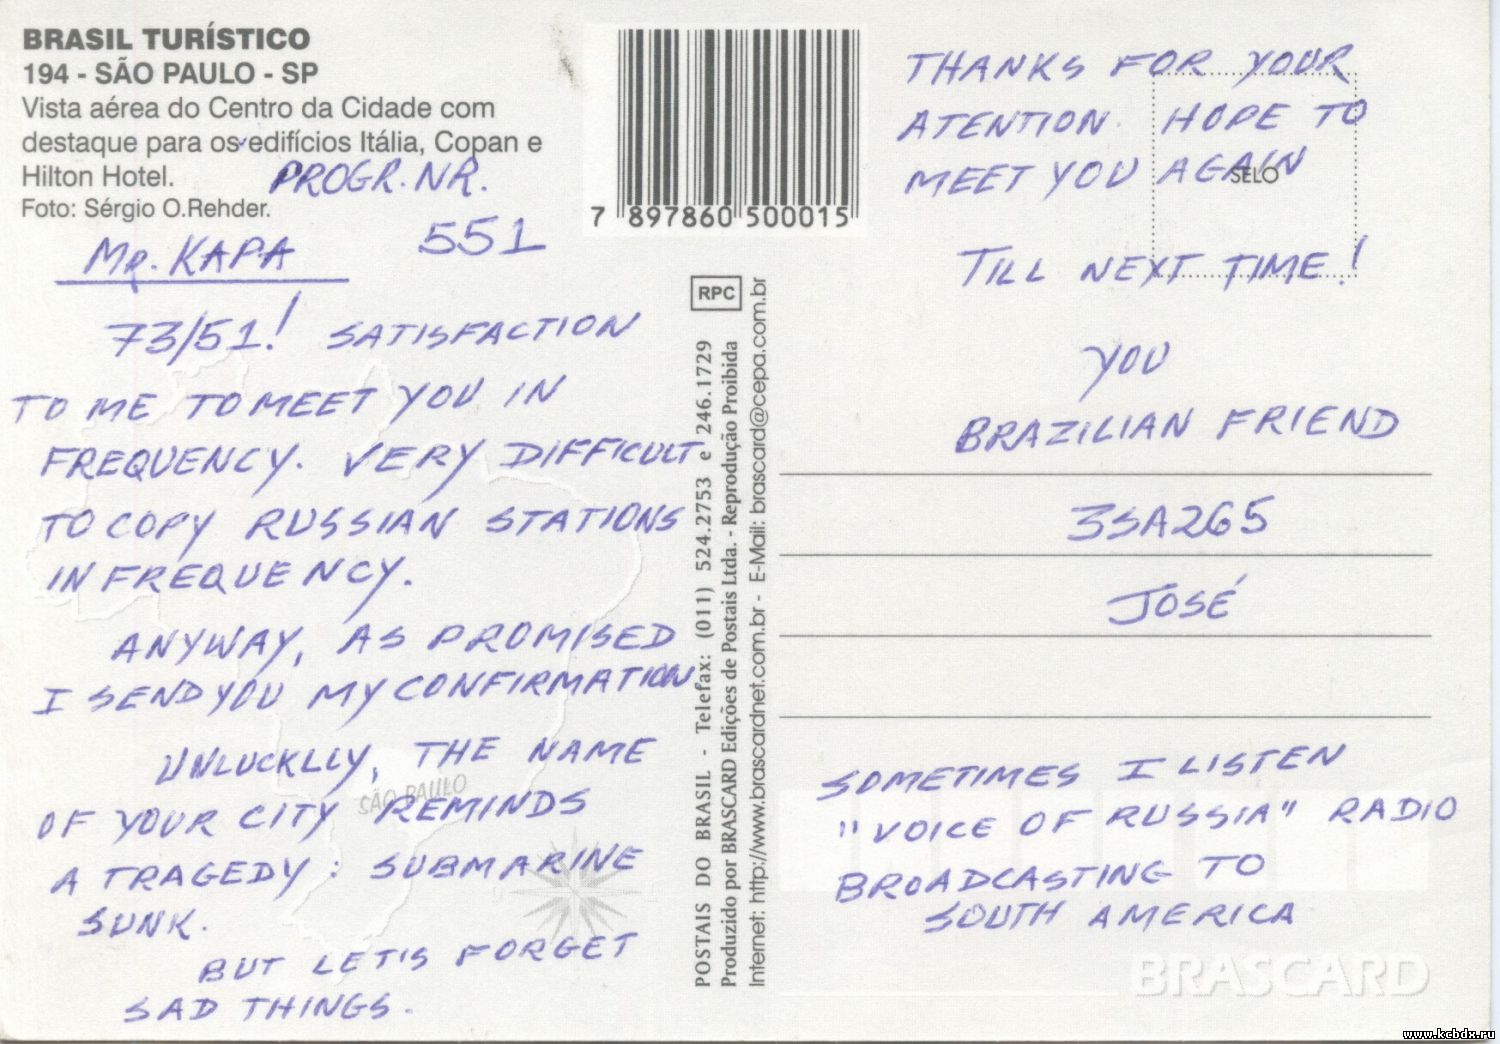 BRASIL TURÍSTICO
194 - SÃO PAULO - SP
Vista aérea do Centro da Cidade com
destaque para os edifícios Itália, Copan e
Hilton Hotel.
Foto: Sérgio O.Rehder.
PROGR. NR.
551
MR. KAPA
73/51! SATISFACTION
TO ME TO MEET YOU IN
FREQUENCY. VERY DIFFICULT
TO COPY RUSSIAN STATIONS
IN FREQUENCY.
ANYWAY, AS PROMISED
I SEND YOU MY CONFIRMATION
UNLUCKLLY, THE NAME
OF YOUR CITY REMINDS
A TRAGEDY: SUBMARINE
SUNK.
BUT LET'S FORGET
SAD THINGS.
SÃO PAULO
7 897860 500015
RPC
POSTAIS DO BRASIL - Telefax: (011) 524.2753 e 246.1729
Produzido por BRASCARD Edições de Postais Ltda. - Reprodução Proibida
Internet: http://www.brascardnet.com.br - E-Mail: brascard@cepa.com.br
THANKS FOR YOUR
ATENTION. HOPE TO
MEET YOU AGAIN
SELO
TILL NEXT TIME!
YOU
BRAZILIAN FRIEND
3SA265
JOSÉ
SOMETIMES I LISTEN
"VOICE OF RUSSIA" RADIO
BROADCASTING TO
SOUTH AMERICA
BRASCARD
www.kcbdx.ru